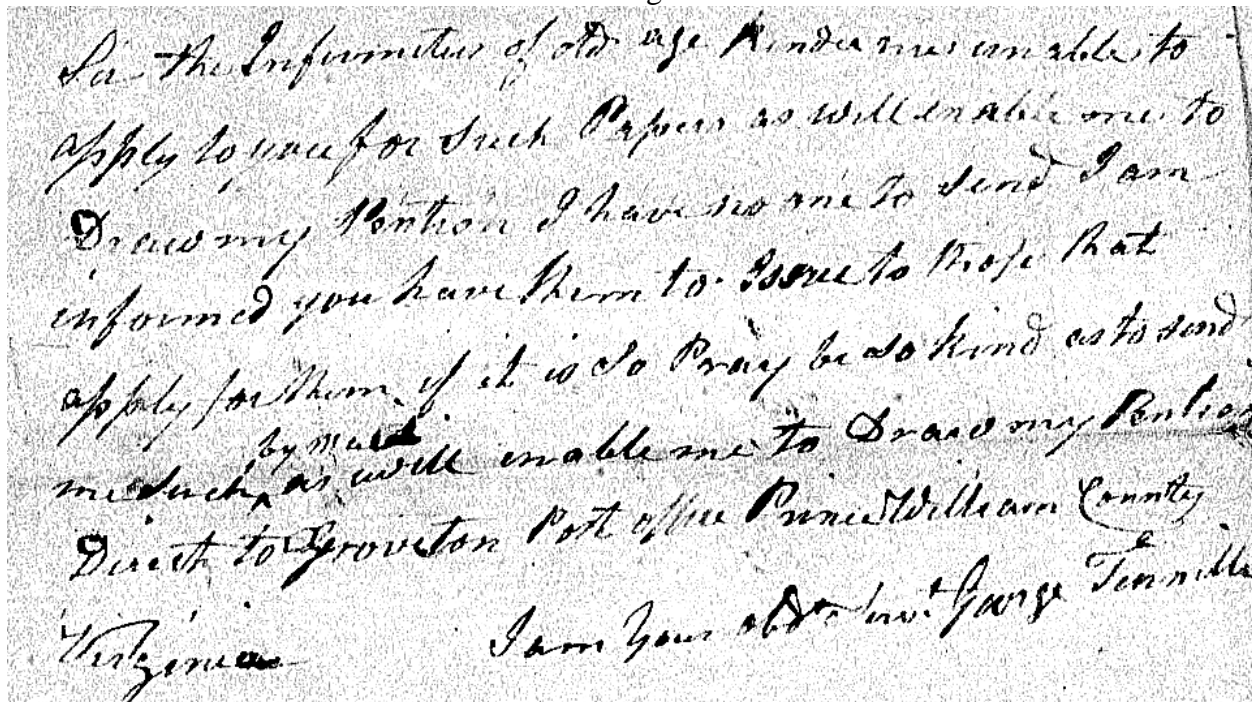 Sir the Infirmities of old age Renders me unable to
apply to you for such Papers as will enable me to
Draw my Pention I have no one to send I am
informed you have them to Issue to those that
apply for them, if it is so Pray be so kind as to send
by Mail
me such ^ as will enable me to Draw my Pention
Direct to Groveton Post office Prince William County
Virginia I am your obdt Servt George Tennille